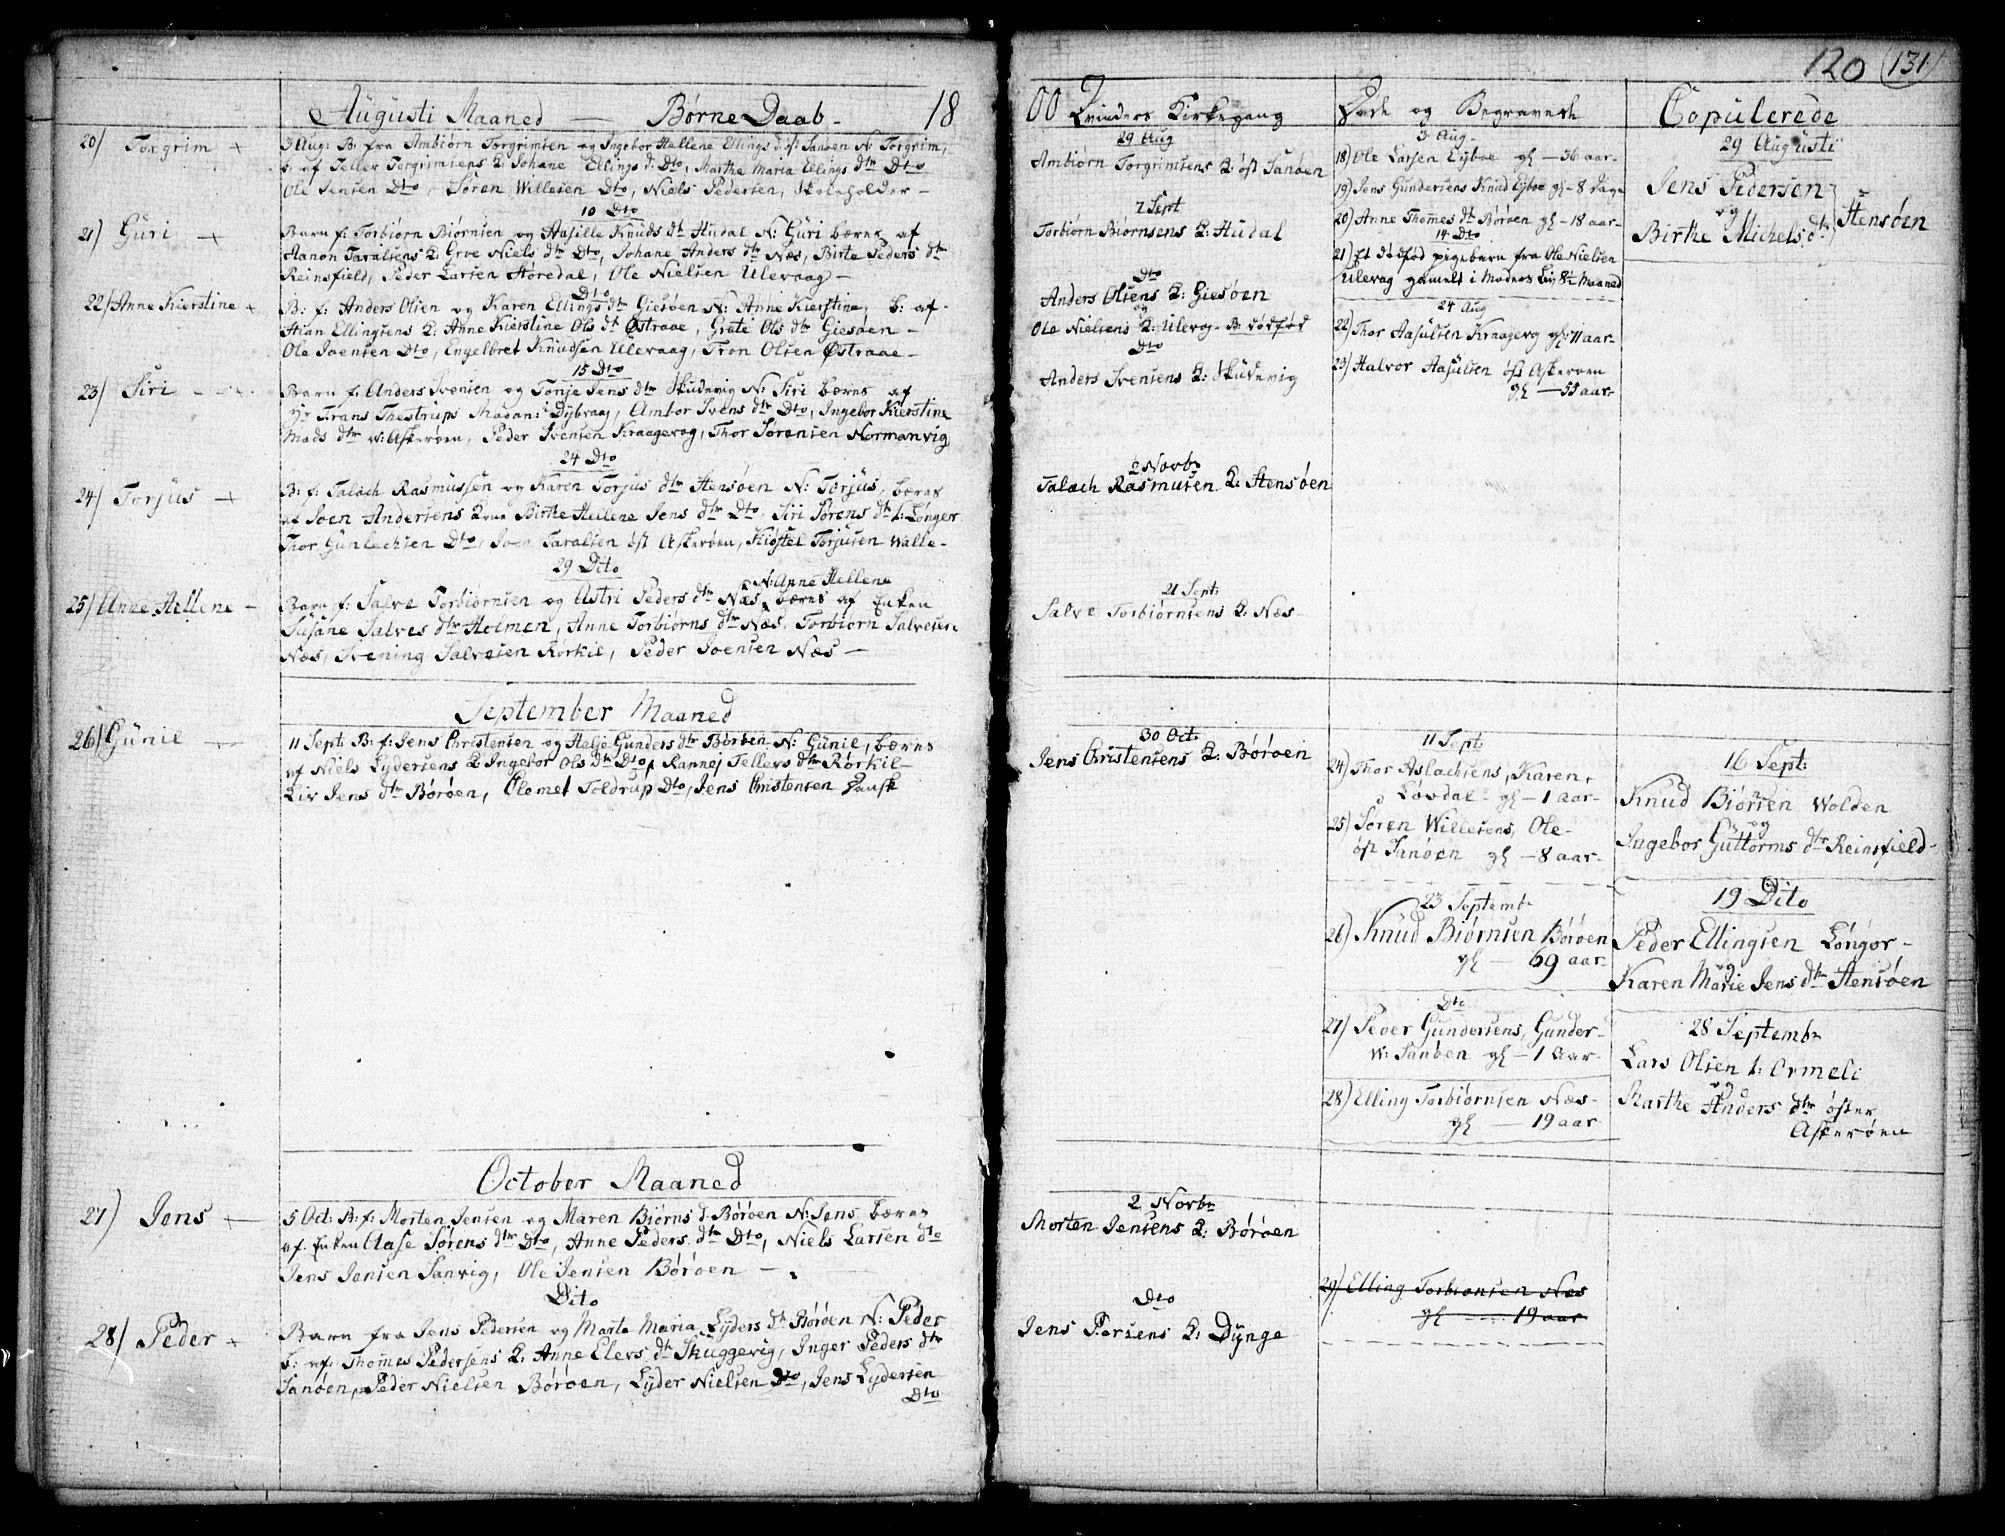 120 (131)
Augusti Maaned — Børne Daab - 18
20/ Torgrim +
3 Aug: B: fra Ambiørn Torgrimsen og Ingebor Hellene Ellings d: øst Sanøen N: Torgrim,
b: af Tellef Torgrimsens K: Johane Ellings d: Dto, Marthe Maria Ellings dtr Dto
Ole Jensen Dto, Søren Willesen Dto, Niels Pedersen, Skoleholder -
10 Dto
21/ Guri +
Barn f: Torbiørn Biørnsen og Aasille Knuds dt Hudal N: Guri bærns af
Aanon Taralsens K: Groe Niels dtr Dto, Johane Anders dtr Næs, Birte Peders dtr
Reinsfield, Peder Larsen Støredal, Ole Nielsen Ulevaag -
Dto
22/ Anne Kierstine +
B: f: Anders Olsen og Karen Ellings dtr Giesøen N: Anne Kierstine, b: af
Stian Ellingsens K: Anne Kierstine Ols dt Østraae, Grete Ols dtr Giesøen -
Ole Joensen Dto, Engelbret Knudsen Ulevaag, Tron Olsen Østraae -
15 Dto
23/ Siri - +
Barn f: Anders Svensen og Tonje Jens dtr Skudevig N: Siri bærns af
Hr Frans Thestrups Madam: Dybvaag, Ambor Svens dtr Dto, Ingebor Kierstine
Mads dtr w: Askerøen, Peder Svensen Kraagevog, Thor Sørensen Normanvig
24 Dto
24/ Torjus +
B: f: Talach Rasmussen og Karen Torjus dtr Stensøen N: Torjus, bærns
af Joen Andersens Kone Birthe Hellene Jens dtr Dto, Siri Sørens dt l: Longer
Thor Gunlachsen Dto, Joen Taralsen øst Askerøen, Kiøstel Torjusen Walle -
29 Dito
25/ Anne Hellene -
N: Anne Hellene
Barn f: Salve Torbiørnsen og Astri Peders dtr Næs, bærns af Enken
Susane Salves dtr Holmen, Anne Torbiørns dtr Næs, Torbiørn Salvesen
Næs, Svening Salvesen Rørkil, Peder Joensen Næs -
September Maaned
26/ Gunil -
11 Sept: B: f: Jens Christensen og Helje Gunders dtr Børøen N: Gunil, bærns
af Niels Lydersens K Ingebor Ols dtr Dto, Rannej Tellevs dtr Rørkil -
Liv Jens dtr Børøen, Clemet Toldrup Dto, Jens Christensen Dansk
October Maaned
27) Jens +
5 Oct: B: f: Morten Jensen og Maren Biørns d: Børøen N: Jens bærns
af Enken Aase Sørens dtr Dto, Anne Peders dtr Dto, Niels Larsen dto
Jens Jensen Sanvig, Ole Jensen Børøen -
Dito
28/ Peder +
Barn fra Jens Pedersen og Marta Maria Lyders dt Børøen N: Peder
b: af: Thomes Pedersens K: Anne Elevs dt Skuggevig, Inger Peders dtr
Sanøen, Peder Nielsen Børøen, Lyder Nielsen Dto, Jens Lydersen
Dto
00 Qvinders Kirkegang
29 Aug
Ambiørn Torgrimsens K: øst Sanøen
7 Sept
Torbiørn Biørnsens K: Hudal
Dto
Anders Olsens K: Giesøen
og
Ole Nielsens K: Ulevog - B: dødfød
Dto
Anders Svensens K: Skudevig
2 Novbr
Talach Rasmusen K: Stensøen
21 Sept:
Salve Torbiørnsens K: Næs -
30 Oct:
Jens Christensens K: Børøen
2 Novbr
Morten Jensens K: Børøen
Dto
Jens Persens K: Dynge
Døde og Begravede
3 Aug -
18) Ole Larsen Eyboe gl - 36 aar -
19) Jens Gundersens Knud Eyboe gl - 8 Dage
20) Anne Thomes dtr Børøen gl - 18 aar -
14 Dto
21) Et dødfød pigebarn fra Ole Nielsen
Ulevag gamelt i Moders Liv 8½ Maaned
24 Aug
22) Thor Aasulsen Kraagevog gl: 71 aar -
23) Halvor Aasulsen øst Askerøen
gl - 55 aar -
11 Sept
24) Thor Aslachsens, Karen,
Løvdal - gl - 1 aar -
25) Søren Willesens, Ole -
øst Sanøen gl - 8 aar -
23 Septembr
26) Knud Biørnsen Børøen
gl - 69 aar -
Dto
27) Peder Gundersens, Gunder -
w: Sanøen gl - 1 Aar -
28) Elling Torbiørnsen Næs -
gl - 19 aar
29) Elling Torbiørnsen Næs
gl - 19 aar
Copulerede
29 Augusti
Jens Pedersen
og
Birthe Michels dtr
Stensøen
16 Sept:
Knud Biørnsen Wolden
og
Ingebor Guttorms dtr Reinsfield -
19 Dito
Peder Ellingsen Longor -
og
Karen Marie Jens dtr Stensøen
28 Septembr
Lars Olsen l: Ormeli
og
Marthe Anders dtr øster
Askerøen